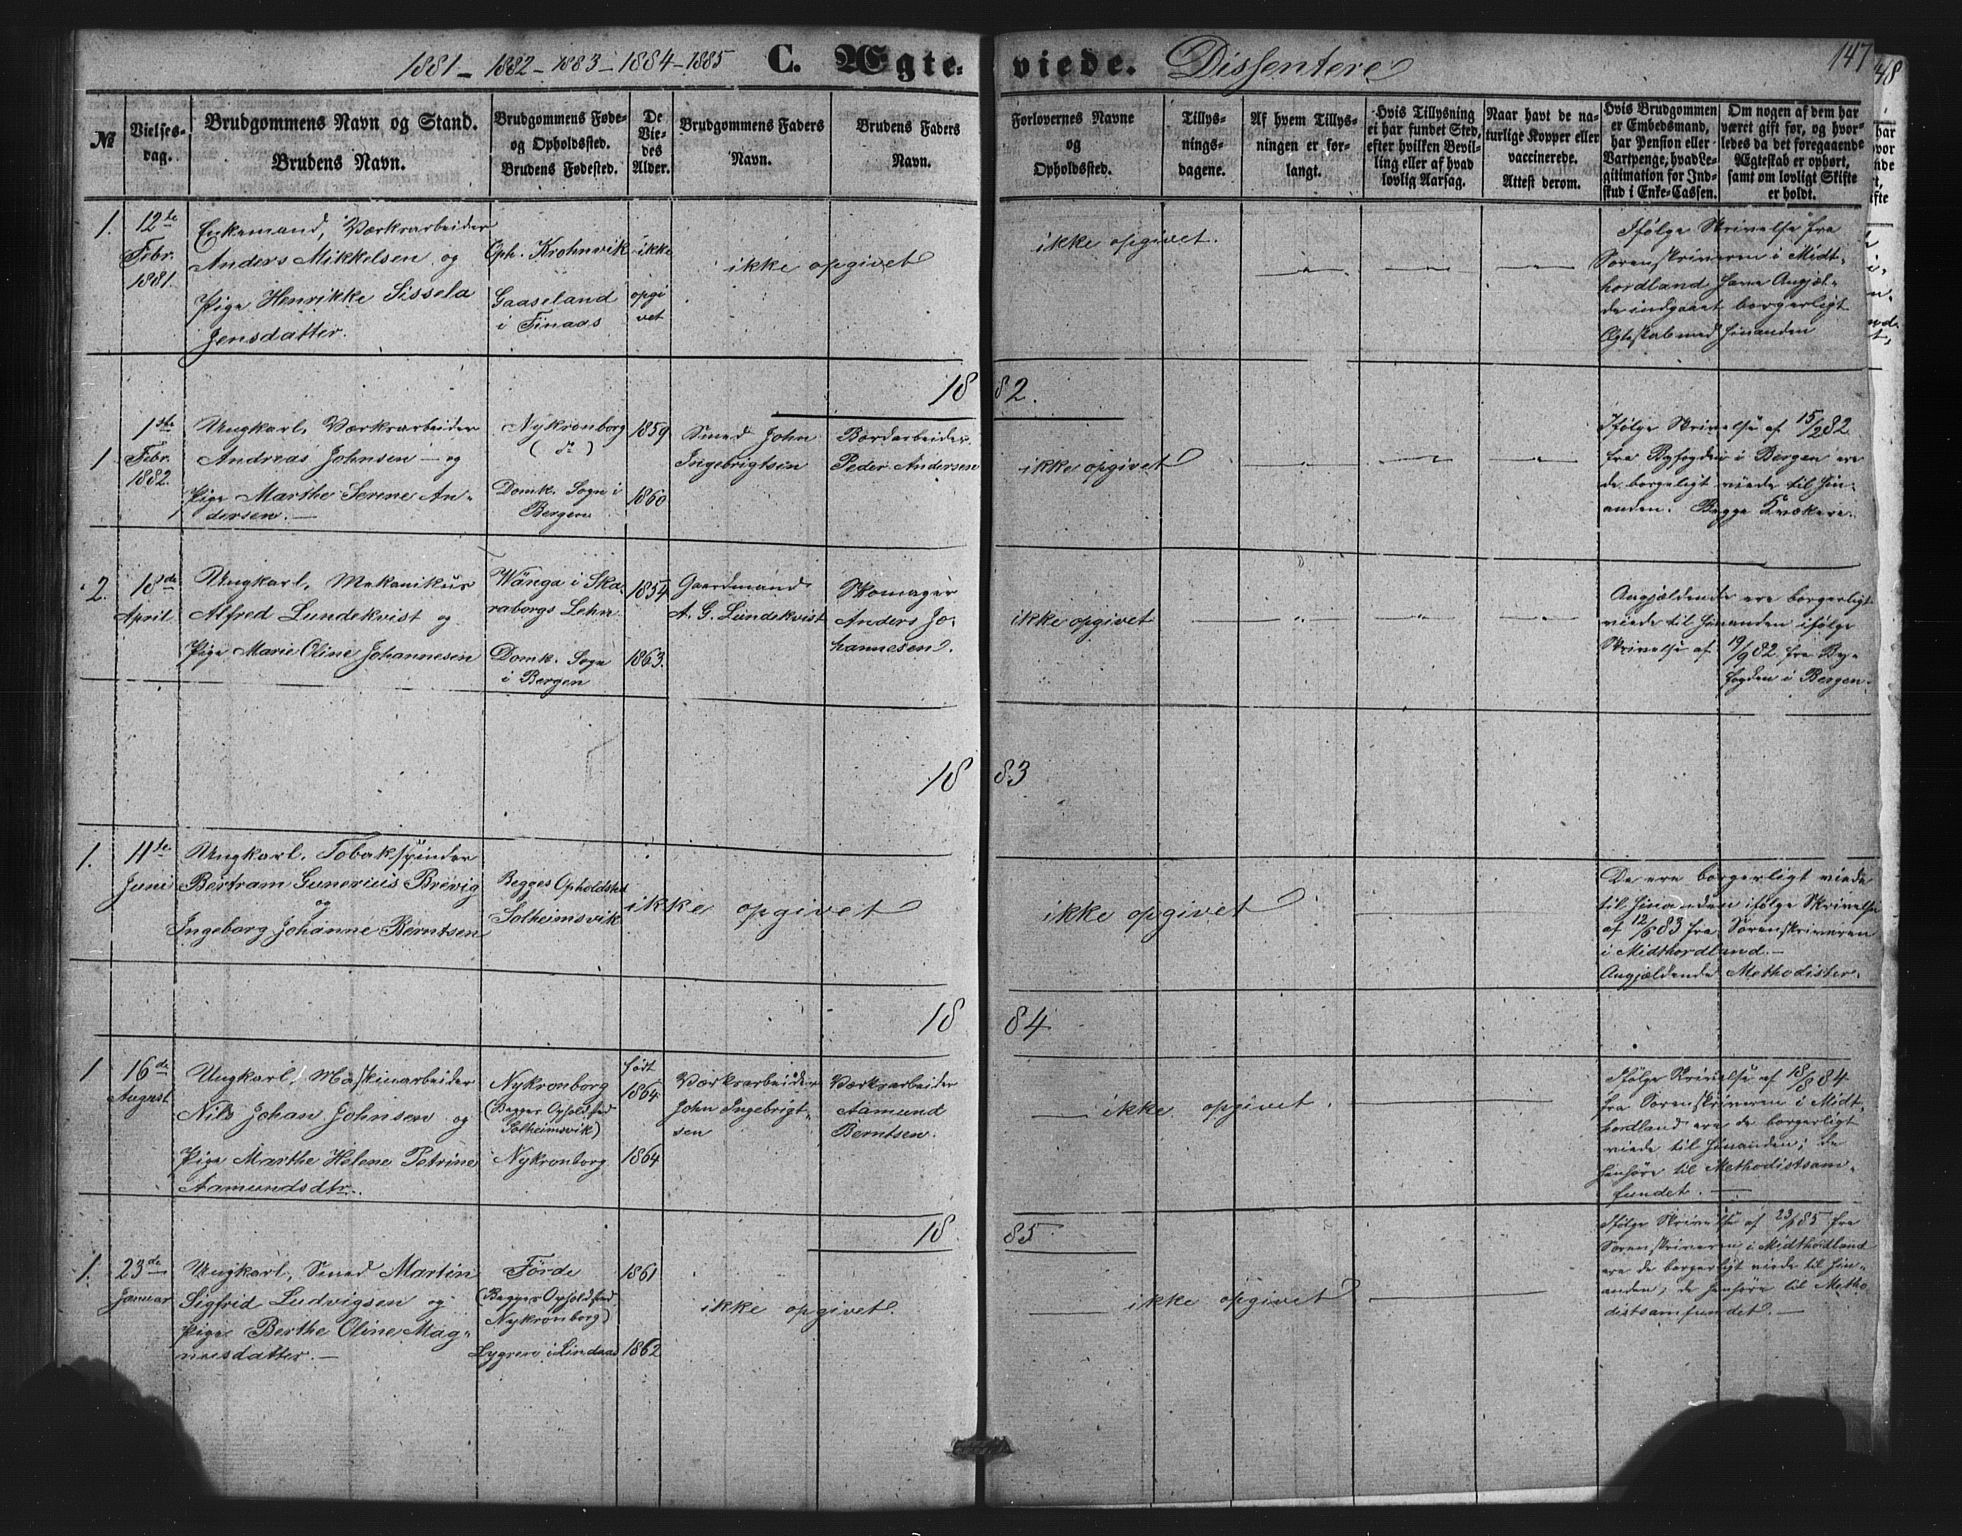 1881 - 1882 - 1883 - 1884 - 1885 C. Ægteviede. Dissentere
147
48
№
Vielsesdag.
Brudgommens Navn og Stand.
Brudens Navn.
Brudgommens Føde- og Opholdssted.
Brudens Fødested.
De Viedes Alder.
Brudgommens Faders Navn.
Brudens Faders Navn.
Forlovernes Navne og Opholdssted.
Tillysningsdagene.
Af hvem Tillysningen er forlangt.
Hvis Tillysning ei har fundet Sted, efter hvilken Bevilling eller af hvad lovlig Aarsag.
Naar havt de naturlige Kopper eller vaccinerede. Attest derom.
Hvis Brudgommen er Embedsmand, har Pension eller Vartpenge, hvad Legitimation for Indskud i Enke-Cassen.
Om nogen af dem har været gift før, og hvorledes da det foregaaende Ægteskab er ophørt, samt om lovligt Skifte er holdt.
1.
12te
Febr.
1881.
Enkemand, Værksarbeider
Anders Mikkelsen og
Pige Henrikke Sissela
Jensdatter.
Oph. Krohnvik
Gaaseland
i Finaas
ikke
opgi
vet
ikke opgivet
ikke opgivet.
Ifølge Skrivelse fra
Sorenskriveren i Midt-
hordland have Angjæl-
de indgaaet borgerligt
Ægteskab med hinanden
1882.
1
1ste
Febr.
1882.
Ungkarl, Værksarbeider
Andreas Johnsen - og
Pige Marthe Serine An-
dersen. -
Nykronborg
(do)
Domk. Sogn i
Bergen
1859
1860
Smed John
Ingebrigtsen
Bordarbeider
Peder Andersen
ikke opgivet
Ifølge Skrivelse af 15/2 82
fra Byfogden i Bergen ere
de borgeligt viede til hin-
anden. Begge Kvækere.
2.
18de
April
Ungkarl, Mekanikus
Alfred Lundekvist og
Pige Marie Oline Johannesen
Wånga i Ska-
raborgs Lehn
Domk. Sogn
i Bergen
1854
1863.
Gaardmand
A. G. Lundekvist
Skomager
Anders Jo-
hannesen.
ikke opgivet
Angjældende ere borgerligt
viede til hinanden ifølge
Skrivelse af 19/9 82. fra By-
fogden i Bergen.
1883
1.
11te
Juni
Ungkarl. Tobakspinder
Bertram Gunerius Brevig
og
Ingeborg Johanne Berntsen
Begges Opholdsted
Solheimsvik
ikke opgivet
ikke opgivet
De ere borgerligt viede
til hinanden ifølge Skrivelse
af 12/6 83 fra Sorenskriveren
i Midthordland. -
Angjældende Methodister.
1884
1
16de
August
Ungkarl, Maskinarbeider
Nils Johan Johnsen og
Pige Marthe Helene Petrine
Aamundsdtr.
Nykronborg
(Begges Opholdsted
Solheimsvik)
Nykronborg
født
1864
1864
Værksarbeider
John Ingebrigt-
sen
Værksarbeider
Aamund
Berntsen.
ikke opgivet.
Ifølge Skrivelse af 18/8 84
fra Sorenskriveren i Midt-
hordland ere de borgerligt
viede til hinanden; de
henhøre til Methodistsam-
fundet. -
1885
1.
23de
Januar
Ungkarl, Smed Martin
Sigfrid Ludvigsen og
Pige Berthe Oline Mag-
nusdatter. -
Førde
(Begges Opholdsted
Nykronborg)
Lygren i Lindaas
1861
1862
ikke opgivet.
ikke opgivet
Ifølge Skrivelse af 23/1 85 fra
Sorenskriveren i Midthordland
ere de borgerligt viede til hin-
anden; de henhøre til Metho-
distsamfundet. -